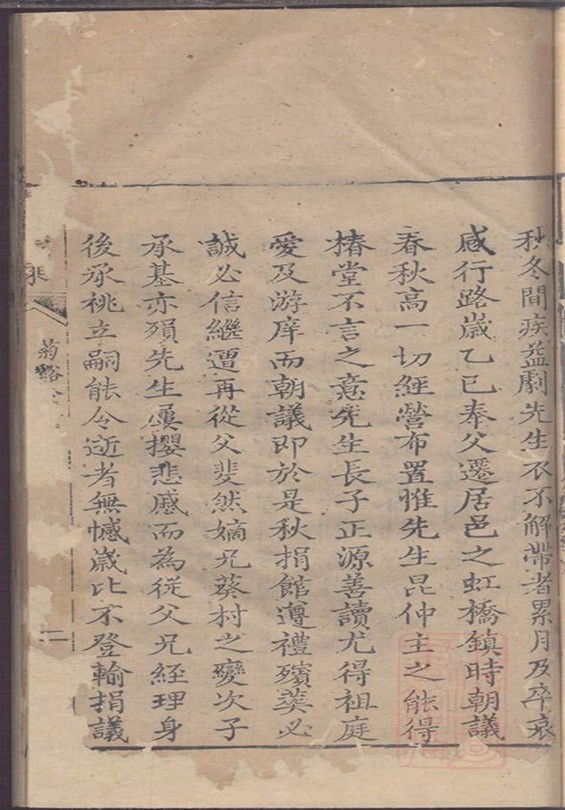 秋冬間疾益劇先生衣不解帶者累月及卒哀
感行路歲乙巳奉父遷居邑之虹橋鎮時朝議
春秋高一切經營布置惟先生昆仲主之能得
椿堂不言之意先生長子正源善讀尤得祖庭
愛及游庠而朝議即於是秋捐館遵禮殯葬必
誠必信繼遭再從父斐然嫡兄葵村之變次子
承基亦殞先生屢攖悲戚而為從父兄經理身
後承祧立嗣能令逝者無憾歲比不登輸捐議
菊谿
二